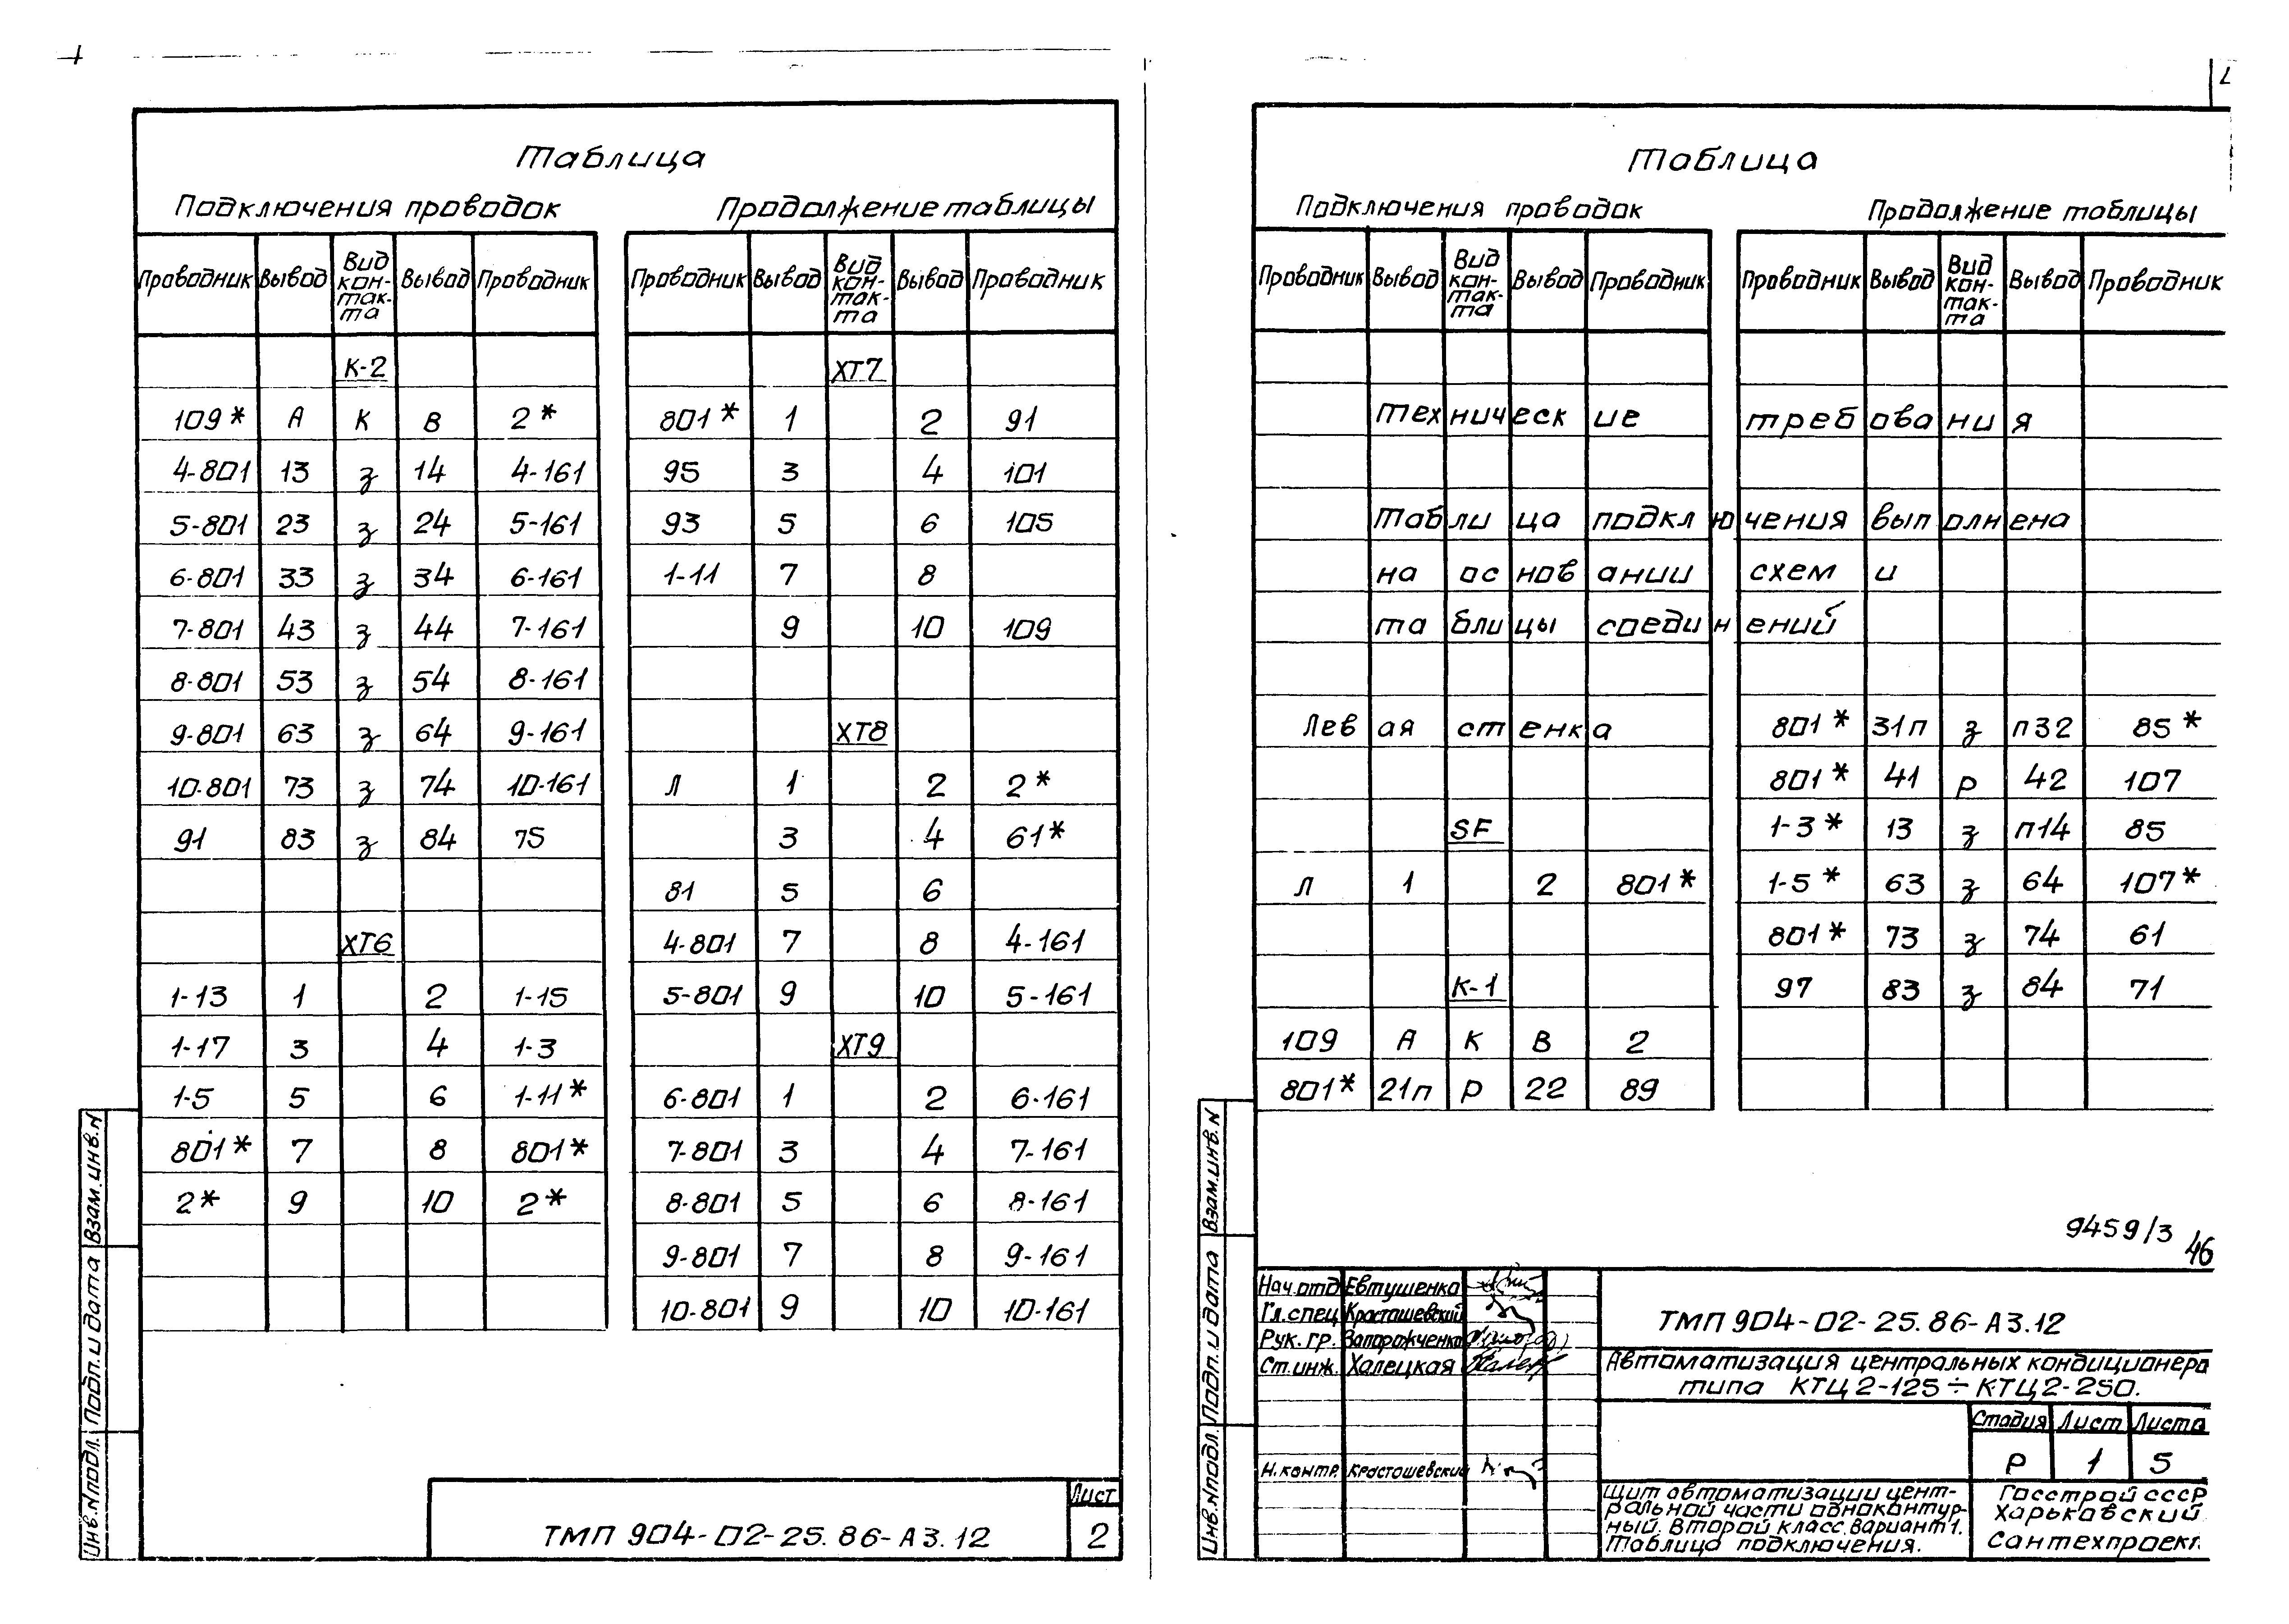 Таблица
Подключения проводок
Продолжение таблицы
Проводник Вывод Вид кон-так-та Вывод Проводник
К-2
109* А К В 2*
4-801 13 з 14 4-161
5-801 23 з 24 5-161
6-801 33 з 34 6-161
7-801 43 з 44 7-161
8-801 53 з 54 8-161
9-801 63 з 64 9-161
10-801 73 з 74 10-161
91 83 з 84 75
ХТ6
1-13 1 2 1-15
1-17 3 4 1-3
1-5 5 6 1-11*
801* 7 8 801*
2* 9 10 2*
Проводник Вывод Вид кон-так-та Вывод Проводник
ХТ7
801* 1 2 91
95 3 4 101
93 5 6 105
1-11 7 8
9 10 109
ХТ8
Л 1 2 2*
3 4 61*
81 5 6
4-801 7 8 4-161
5-801 9 10 5-161
ХТ9
6-801 1 2 6-161
7-801 3 4 7-161
8-801 5 6 8-161
9-801 7 8 9-161
10-801 9 10 10-161
Инв.N подл. Подп. и дата Взам.инв.N
ТМП 904-02-25.86-А3.12
Лист
2
Таблица
Подключения проводок
Продолжение таблицы
Проводник Вывод Вид кон-так-та Вывод Проводник
Проводник Вывод Вид кон-так-та Вывод Проводник
Технические требования
Таблица подключения выполнена
на основании схем и
таблицы соединений
Левая стенка
SF
Л 1 2 801*
К-1
109 А К В 2
801* 21п Р 22 89
801* 31п з п32 85*
801* 41 Р 42 107
1-3* 13 з п14 85
1-5* 63 з 64 107*
801* 73 з 74 61
97 83 з 84 71
9459/3 46
Инв.N подл. Подп. и дата Взам.инв.N
Нач.отд Евтушенко
Гл.спец Красташевский
Рук. гр. Запорожченко
Ст.инж. Халецкая
Н.контр. Красташевский
ТМП 904-02-25.86-А3.12
Автоматизация центральных кондиционера
типа КТЦ2-125÷КТЦ2-250.
Стадия Лист Листа
Р 1 5
Щит автоматизации цент-
ральной части однокантур-
ный. Второй класс. Вариант 1.
Таблица подключения.
Госстрой СССР
Харьковский
Сантехпроект